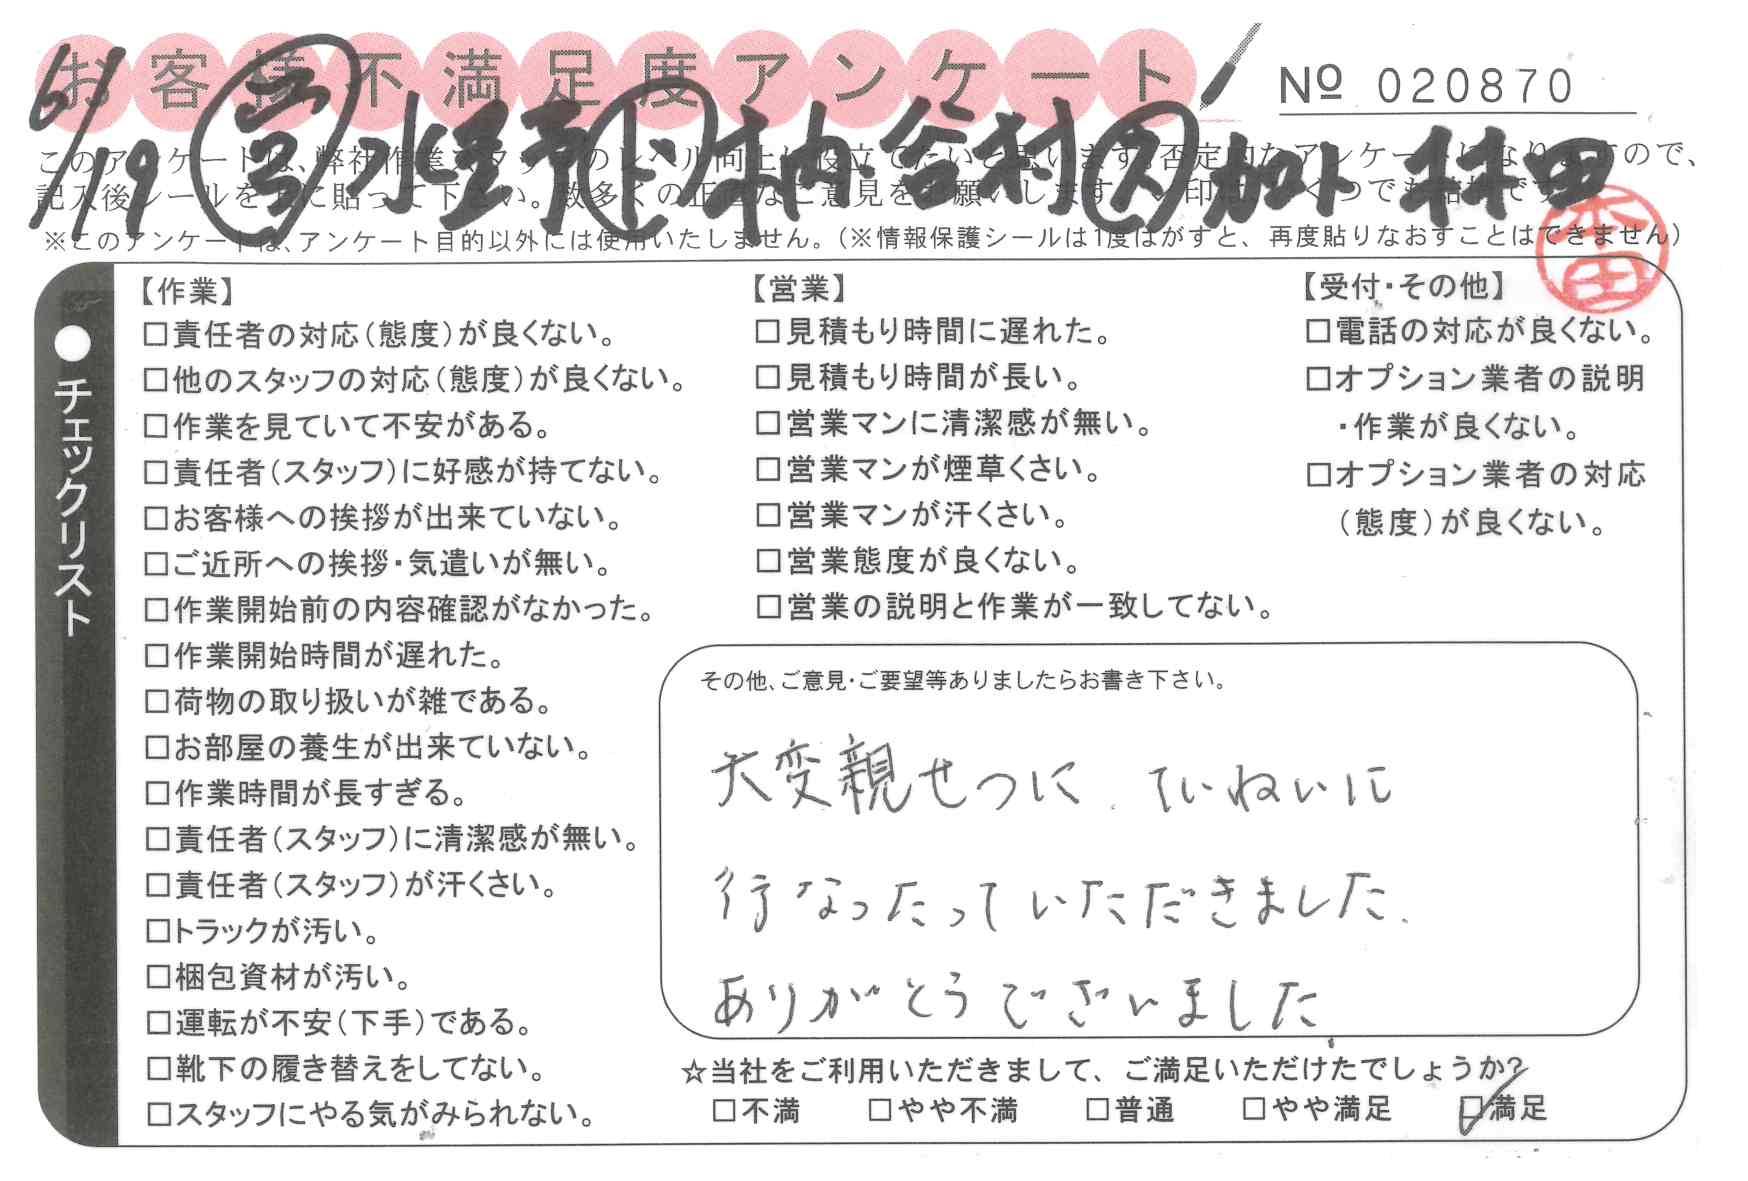 お客様不満足度アンケート
№ 020870
6/19 営 水野 ド 木内・谷村 ス 加ト 林田
このアンケートは、弊社作業スタッフのレベル向上に役立てたいと思います。否定的なアンケートになりますので、
記入後シールを上に貼って下さい。数多くの正直なご意見をお願いします。
※このアンケートは、アンケート目的以外には使用いたしません。（※情報保護シールは1度はがすと、再度貼りなおすことはできません）
●チェックリスト
【作業】
□責任者の対応（態度）が良くない。
□他のスタッフの対応（態度）が良くない。
□作業を見ていて不安がある。
□責任者（スタッフ）に好感が持てない。
□お客様への挨拶が出来ていない。
□ご近所への挨拶・気遣いが無い。
□作業開始前の内容確認がなかった。
□作業開始時間が遅れた。
□荷物の取り扱いが雑である。
□お部屋の養生が出来ていない。
□作業時間が長すぎる。
□責任者（スタッフ）に清潔感が無い。
□責任者（スタッフ）が汗くさい。
□トラックが汚い。
□梱包資材が汚い。
□運転が不安（下手）である。
□靴下の履き替えをしてない。
□スタッフにやる気がみられない。
【営業】
□見積もり時間に遅れた。
□見積もり時間が長い。
□営業マンに清潔感が無い。
□営業マンが煙草くさい。
□営業マンが汗くさい。
□営業態度が良くない。
□営業の説明と作業が一致してない。
【受付・その他】
□電話の対応が良くない。
□オプション業者の説明
・作業が良くない。
□オプション業者の対応
（態度）が良くない。
その他、ご意見・ご要望等ありましたらお書き下さい。
大変親せつに、ていねいに
行なったっていただきました。
ありがとうございました
☆当社をご利用いただきまして、ご満足いただけたでしょうか？
□不満 □やや不満 □普通 □やや満足 ☑満足